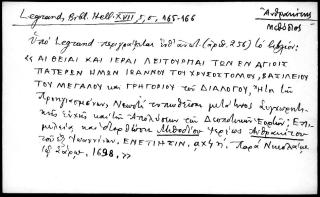 Legrand, Bibl. Hell. XVII s., 5, 165-166
Ἀνθρακίτης
Μεθόδιος
Ὑπὸ Legrand περιγράφεται ὑπ' ἀριθ. (ἀριθ. 256) τὸ βιβλίον:
«ΑΙ ΘΕΙΑΙ ΚΑΙ ΙΕΡΑΙ ΛΕΙΤΟΥΡΓΙΑΙ ΤΩΝ ΕΝ ΑΓΙΟΙΣ
ΠΑΤΕΡΩΝ ΗΜΩΝ ΙΩΑΝΝΟΥ ΤΟΥ ΧΡΥΣΟΣΤΟΜΟΥ, ΒΑΣΙΛΕΙΟΥ
ΤΟΥ ΜΕΓΑΛΟΥ καὶ ΓΡΗΓΟΡΙΟΥ τοῦ ΔΙΑΛΟΓΟΥ, Ἤτοι τῶν
Προηγιασμένων, Νεωστὶ τυπωθεῖσαι μετὰ τῆς Συγχωρη-
τικῆς Εὐχῆς καὶ τῶν Ἀπολύσεων τῶν Δεσποτικῶν Ἑορτῶν; Ἐπι-
μελείᾳ καὶ διορθώσει Μεθοδίου ἱερέως Ἀνθρακίτου
τοῦ ἐξ Ἰωαννίνων, ΕΝΕΤΙΗΣΙΝ, αχϟη. Παρὰ Νικολάῳ
τῷ Σάρῳ, 1698.»